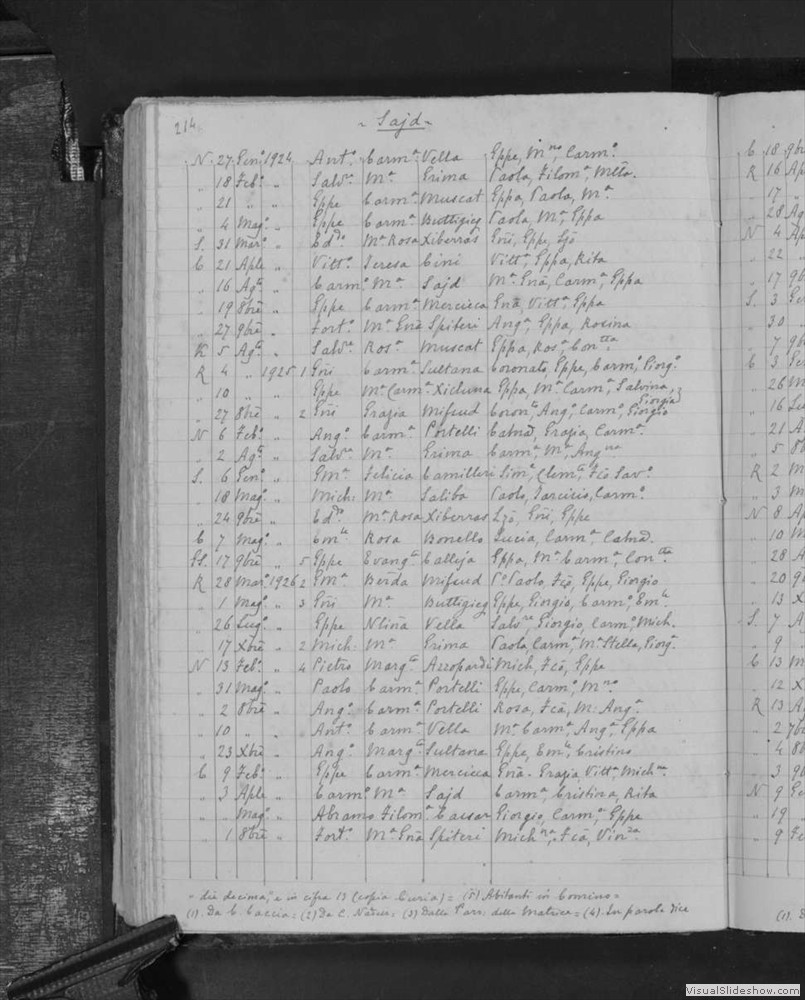 214.
- Sajd -
N. 27 Genº 1924 Antº Carmª Vella Gppe, Mnº, Carmº
„ 18 Febº „ Salvre Mª Grima Paola, Filomª, Melta.
„ 21 „ „ Gppe Carmª Muscat Gppa, Paola, Mª
„ 4 Magº „ Gppe Carmª Buttigieg Paola, Mª, Gppa
S. 31 Marº „ Eddº Mª Rosa Xiberras Gñi, Gppe,
C 21 Aple „ Vittº Teresa Cini Vittª, Gppa, Rita
„ 16 Agº „ Carmº Mª Sajd Mª Gnā, Carmª, Gppa
„ 19 8bre „ Gppe Carmª Mercieca Gnā, Vittª, Gppa
„ 27 9bre „ Fortº Mª Gnā Spiteri Angª, Gppa, Rosina
K 5 Agº „ Salvre Rosª Muscat Gppa, Rosª, Concetta
R 4 „ 1925 1 Gñi Carmª Sultana Coronato, Gppe, Carmº, Giorgº
„ 10 „ „ Gppe Mª Carmª Xicluna Gppa, Mª Carmª, Salvina,
Giorgia
„ 27 8bre „ 2 Gñi Grazia Mifsud Corontº, Angº, Carmº, Giorgio
N 6 Febº „ Angº Carmª Portelli Catnā, Grazia, Carmª
„ 2 Agº „ Salvre Mª Grima Carmª, Mª, Angna
S. 6 Genº „ Gmª Felicia Camilleri Simº, Clemte, Fcō Savº
„ 18 Magº „ Mich: Mª Saliba Paolo, Tarcisio, Carmº
„ 24 9bre „ Eddº Mª Rosa Xiberras Gñi, Gppe
C 7 Magº „ Emle Rosa Bonello Lucia, Carmª, Catnā.
SS. 17 9bre „ 5 Gppe Evangta Calleja Gppa, Mª Carmª, Contta
R 28 Marº 1926 2 Gmª Berda Mifsud Pº Paolo, Fcō, Gppe, Giorgio
„ 1 Magº „ 3 Gñi Mª Buttigieg Gppe, Giorgio, Carmº, Emle
„ 26 Lugº „ Gppe Ntina Vella Salvre, Giorgio, Carmº, Mich.
„ 17 Xbre „ 2 Mich: Mª Grima Paola, Carmª, Mª Stella, Giorgª
N 13 Febº „ 4 Pietro Margta Azzopardi Mich, Fcō, Gppe
„ 31 Magº „ Paolo Carmª Portelli Gppe, Carmº, Mnº
„ 2 8bre „ Angº Carmª Portelli Rosa, Fcā, M. Angª
„ 10 „ „ Antº Carmª Vella Mª Carmª, Angª, Gppa
„ 23 Xbre „ Angº Margta Sultana Gppe, Emle, Cristino
C 9 Febº „ Gppe Carmª Mercieca Gnā. Grazia, Vittª, Michna
„ 3 Aple „ Carmº Mª Sajd Carmª, Cristina, Rita
„ Magº „ Abramo Filomª Caesar Giorgio, Carmª, Gppe
„ 1 8bre „ Fortº Mª Gnā Spiteri Michna, Fcā, Vinza
= die decima, e in cifra 13 (copia Curia) = (5) Abitanti in Comino =
(1) Da C. Caccia = (2) Da C. = (3) Dalla Parr. della Matrice = (4) In parole dice
C 18 9b
R 16 Ap
„ 17 „
„ 28 Ag
N 4 Ap
„ 22 „
„ 17 9b
S. 3 Ge
„ 30 „
„ 7 9b
C 3 Ge
„ 26 M
„ 16 Lu
„ 21 A
„ 5 8b
R 2 M
„ 3 M
N 8 Ap
„ 10 M
„ 28 A
„ 20 9b
„ 13 X
S. 7 A
„ 9 „
C 13 M
„ 12 X
R 13 A
„ 2 7b
„ 4 8b
„ 3 9b
N 9 Ge
„ 19 „
„ 9 Fe
(1). D
VisualSlideshow.com